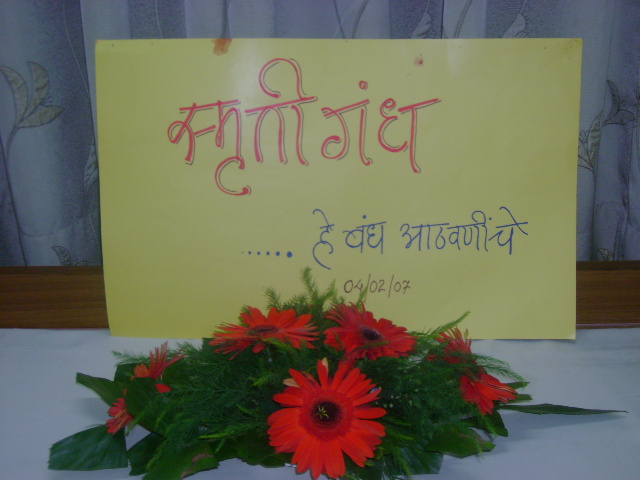 स्मृतीगंध
..... हे बंध आठवणींचे
04/02/07